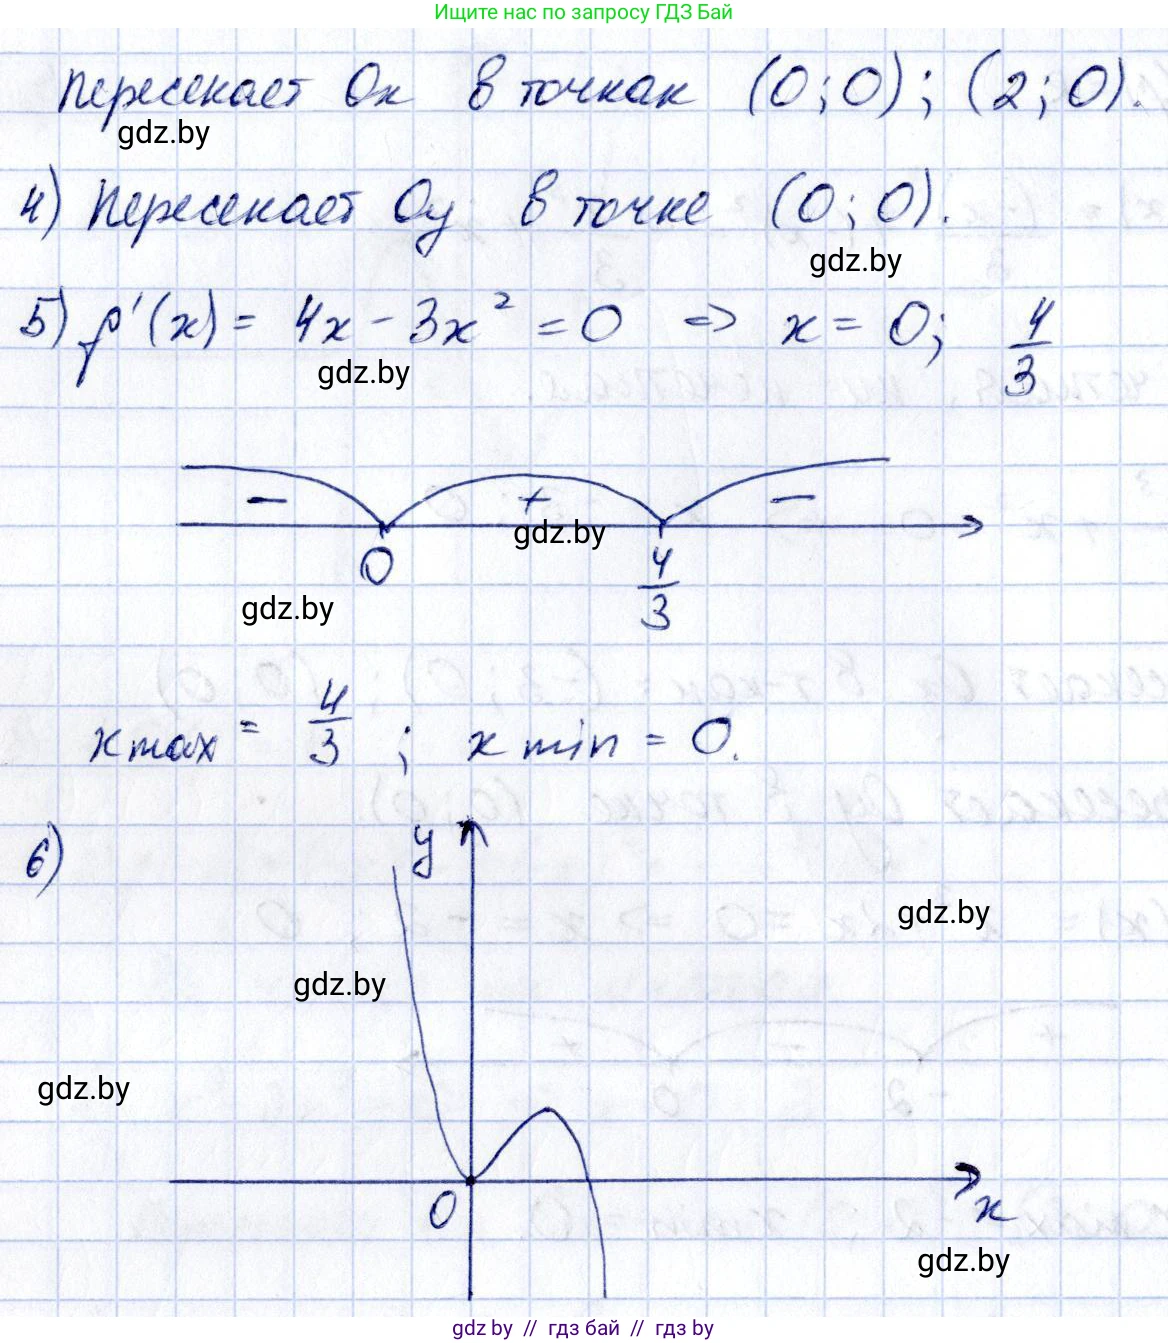 Ищите нас по запросу ГДЗ Бай
пересекает Ox в точках (0; 0); (2; 0).
gdz.by
4) Пересекает Oy в точке (0; 0).
gdz.by
5) f'(x) = 4x - 3x² = 0 => x = 0; 4/3
gdz.by
- + -
gdz.by
0 4/3
gdz.by
x max = 4/3 ; x min = 0.
6) y
gdz.by
gdz.by
gdz.by
0 x
gdz.by
gdz by // гдз бай // гдз by